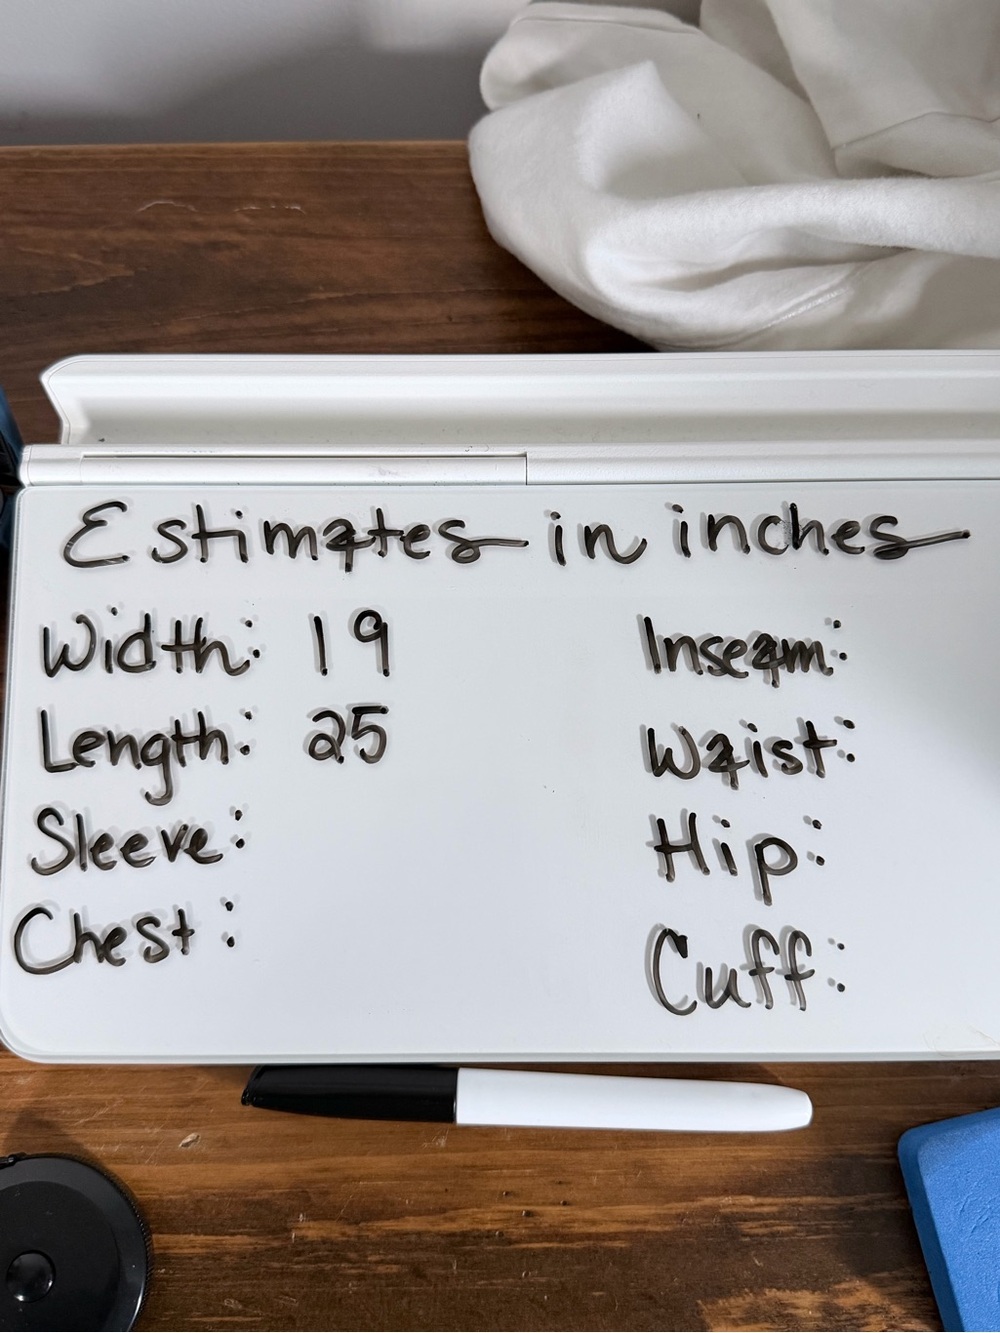 Estimates in inches
Width: 19
Length: 25
Sleeve:
Chest:
Inseam:
Waist:
Hip:
Cuff: